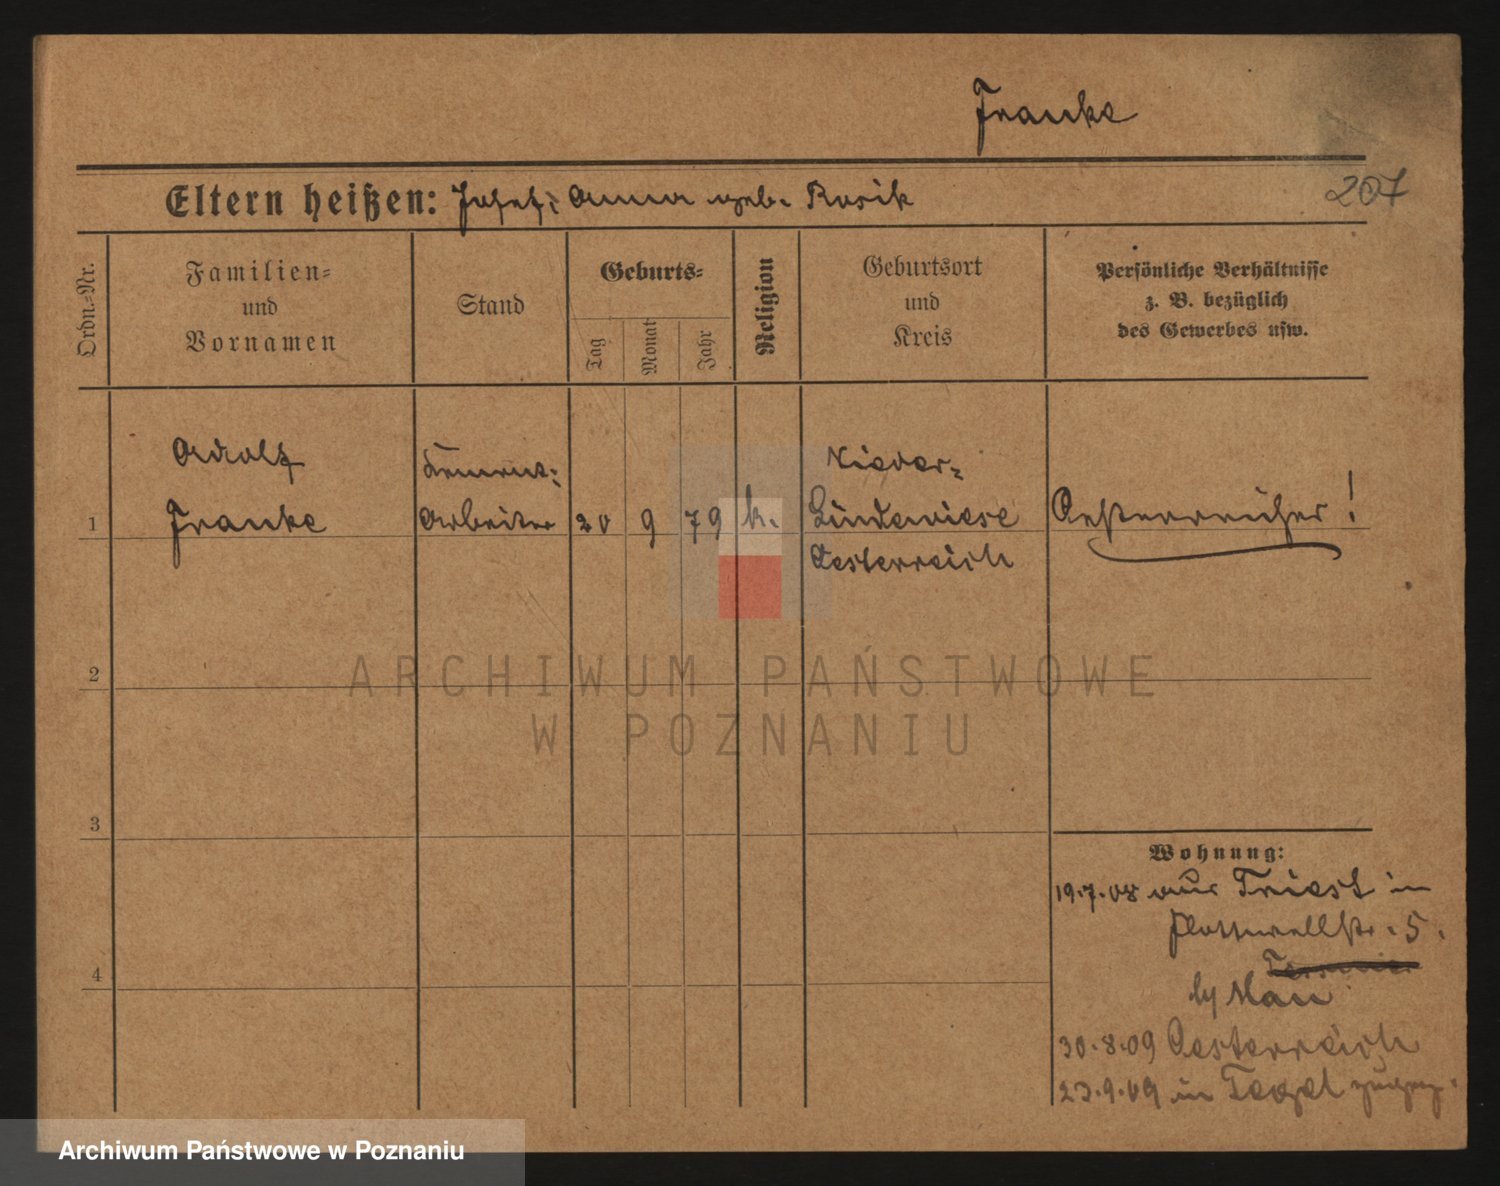 Franke
Eltern heißen: Josef; Anna geb. Rosik
207
Ordn.-Nr.
Familien-
und
Vornamen
Stand
Geburts-
Tag
Monat
Jahr
Religion
Geburtsort
und
Kreis
Persönliche Verhältnisse
z. B. bezüglich
des Gewerbes usw.
1
Adolf
Franke
Arbeiter
20
9
79
k.
Nieder-
Lindewiese
Oesterreich
Oesterreicher!
2
3
4
Wohnung:
19.7.08 aus Triest in
Flottwellstr. 5.
by Mau
30.8.09 Oesterreich
23.9.09 in Tegel
ARCHIWUM PAŃSTWOWE
W POZNANIU
Archiwum Państwowe w Poznaniu